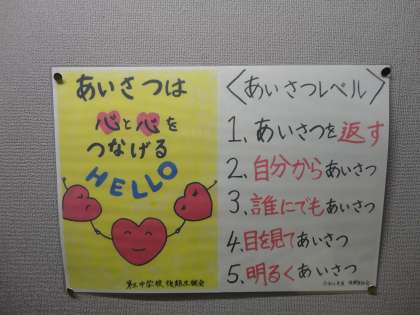 あいさつは
心と心を
つなげる
HELLO
〈あいさつレベル〉
1. あいさつを返す
2. 自分からあいさつ
3. 誰にでもあいさつ
4. 目を見てあいさつ
5. 明るくあいさつ